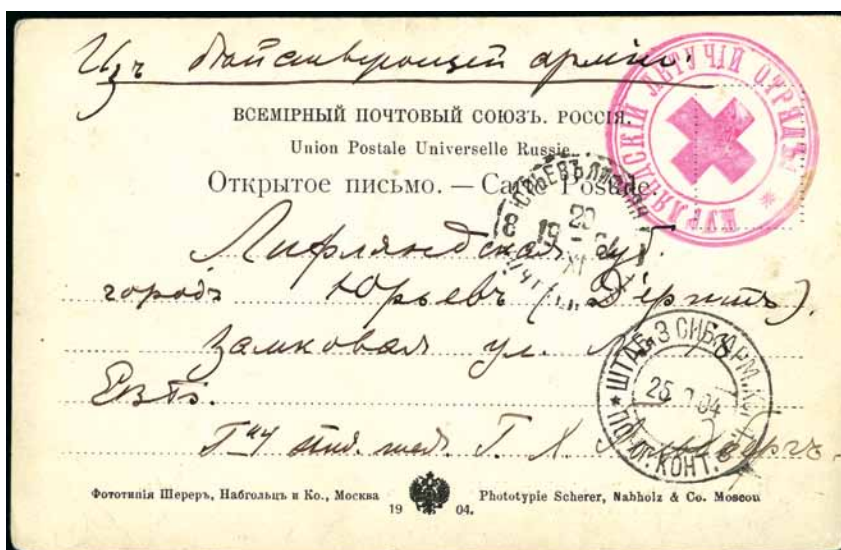 Изъ Дѣйствующей арміи.
ВСЕМІРНЫЙ ПОЧТОВЫЙ СОЮЗЪ. РОССІЯ.
Union Postale Universelle Russie.
Открытое письмо. — Carte Postale
КУРЛЯНДСКІЙ ЛЕТУЧІЙ ОТРЯДЪ *
ЮРЬЕВЪ ЛИФЛЯН
20
8 19
XI
Лифляндская губ.
городъ Юрьевъ (Дерптъ).
Замковая ул.
ШТАБЪ 3 СИБ. АРМ. КОР
25 04
КОНТ.
Г-ну студ. мед. Г. Х.
Фототипія Шереръ, Набгольцъ и Ко., Москва
Phototypie Scherer, Nabholz & Co. Moscou
19 04.